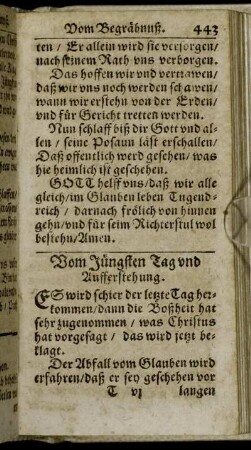 Vom Begräbnuß. 443
ten / Er allein wird sie versorgen /
nach seinem Rath vns verborgen.
Das hoffen wir vnd vertrawen /
daß wir vns noch werden schawen /
wann wir erstehn von der Erden /
vnd für Gericht tretten werden.
Nun schlaff biß dir Gott vnd al-
len / seine Posaun läst erschallen /
Daß offentlich werd gesehen / was
hie heimlich ist geschehen.
GOTT helff vns / daß wir alle
gleich / im Glauben leben Tugend-
reich / darnach frölich von hinnen
gehn / vnd für seim Richterstul wol
bestehn / Amen.
Vom Jüngsten Tag vnd
Aufferstehung.
ES wird schier der letzte Tag her-
kommen / dann die Boßheit hat
sehr zugenommen / was Christus
hat vorgesagt / das wird jetzt be-
klagt.
Der Abfall vom Glauben wird
erfahren / daß er sey geschehen vor
T vj langen